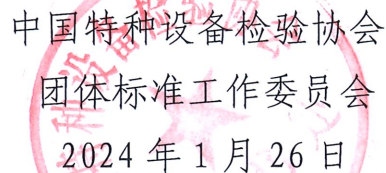 中国特种设备检验协会
团体标准工作委员会
2024年1月26日